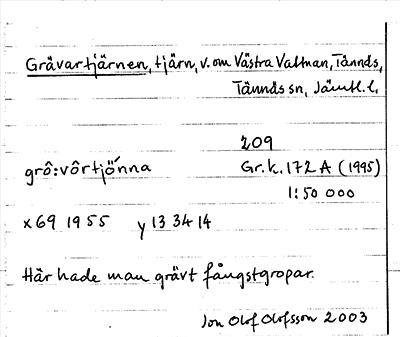 Grävartjärnen, tjärn, v. om Västra Vattnan, Tännäs,
Tännäs sn, Jämtl. l.
209
grô:vôrtjö́nna Gr.k. 172 A (1995)
1:50 000
x 69 19 55 y 13 34 14
Här hade man grävt fångstgropar.
Jon Olof Olofsson 2003